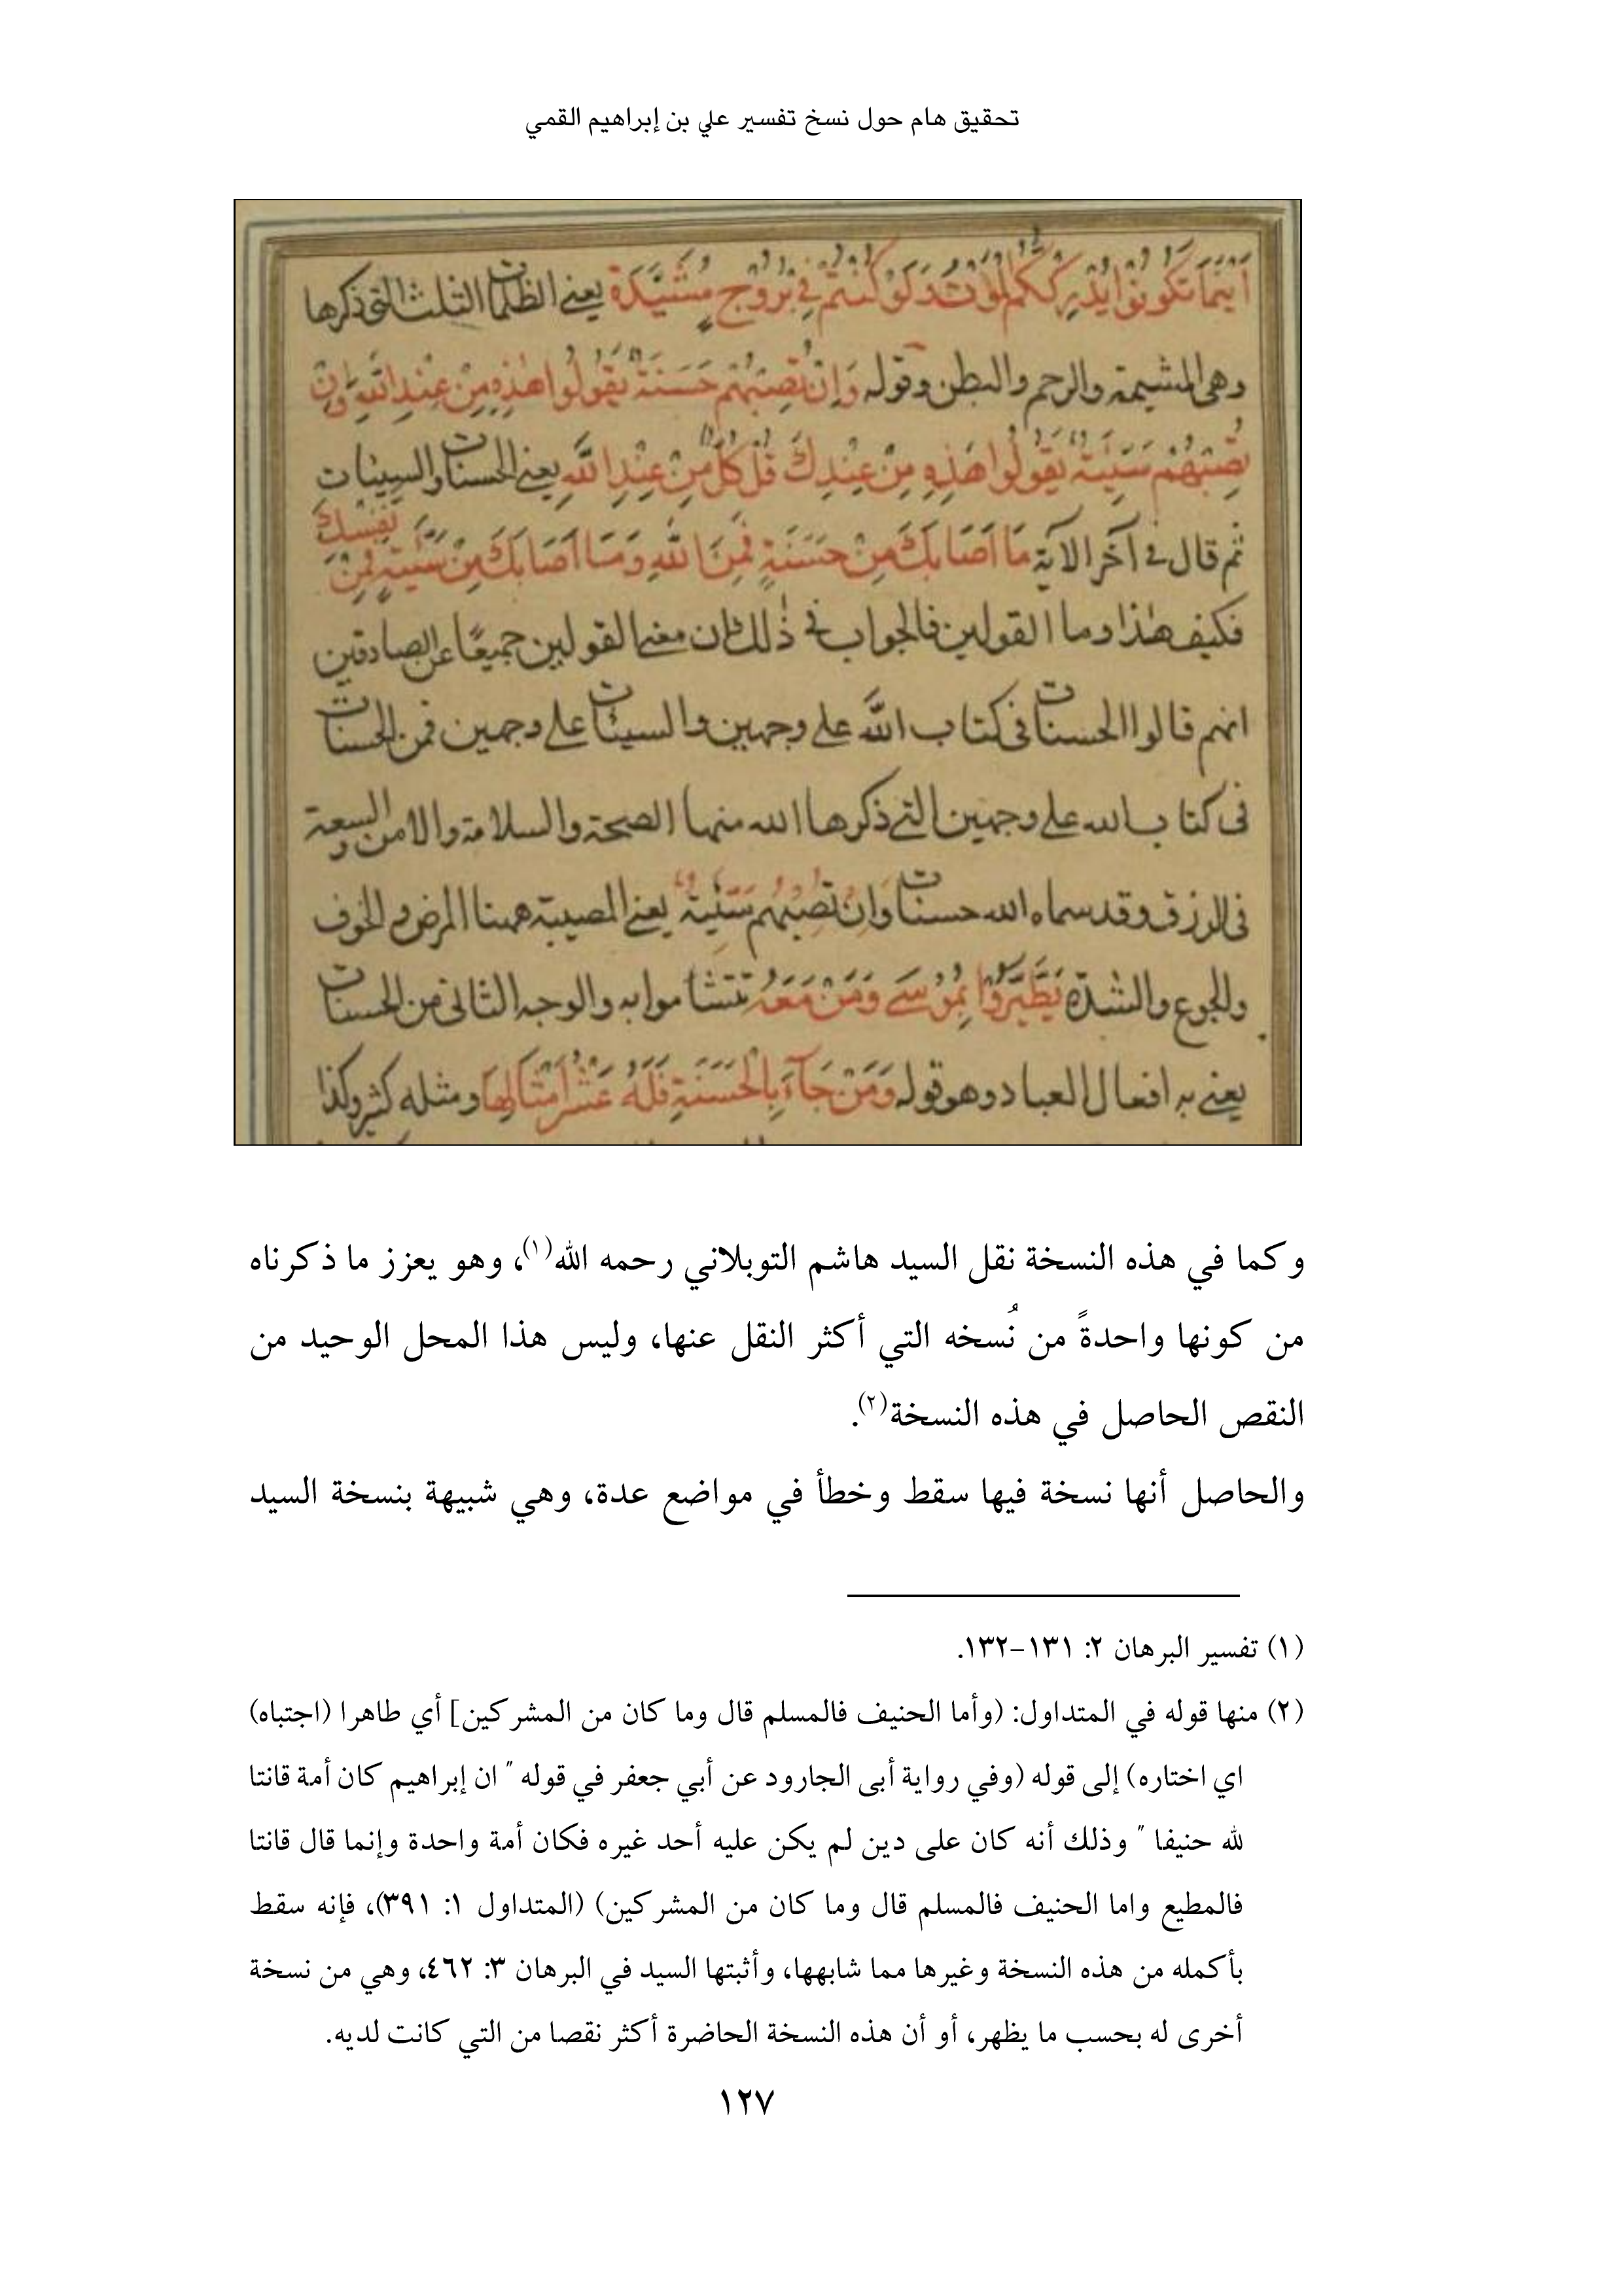 تحقيق هام حول نسخ تفسير علي بن إبراهيم القمي
أَيْنَمَا تَكُونُوا يُدْرِكْكُمُ الْمَوْتُ وَلَوْ كُنْتُمْ فِي بُرُوجٍ مُشَيَّدَةٍ يعني الظلمات الثلث التي ذكرها
وهي المشيمة والرحم والبطن وقوله وَاِنْ تُصِبْهُمْ حَسَنَةٌ يَقُولُوا هٰذِهِ مِنْ عِنْدِ اللّٰهِ وَاِنْ
تُصِبْهُمْ سَيِّئَةٌ يَقُولُوا هَذِهِ مِنْ عِنْدِكَ قُلْ كُلٌّ مِنْ عِنْدِ اللَّهِ يعني الحسنات والسيئات
ثم قال في آخر الآية مَا اَصَابَكَ مِنْ حَسَنَةٍ فَمِنَ اللّٰهِ وَمَا اَصَابَكَ مِنْ سَيِّئَةٍ فَمِنْ نَفْسِكَ
فكيف هذا وما القولين فالجواب في ذلك ان معنى القولين جميعًا عن الصادقين
انهم قالوا الحسنات في كتاب الله على وجهين والسيئات على وجهين فمن الحسنات
في كتاب الله على وجهين التي ذكرها الله منها الصحة والسلامة والامن والسعة
في الرزق وقد سماه الله حسنات وَاِنْ تُصِبْهُمْ سَيِّئَةٌ يعني المصيبة ههنا المرض والخوف
والجوع والشدة يَطَّيَّرُوا بِمُوسَى وَمَنْ مَعَهُ تتشاموا به والوجه الثاني من الحسنات
يعني به افعال العباد وهو قوله وَمَنْ جَآءَ بِالْحَسَنَةِ فَلَهُ عَشْرُ اَمْثَالِهَا ومثله كثير وكذا
وكما في هذه النسخة نقل السيد هاشم التوبلاني رحمه الله(١)، وهو يعزز ما ذكرناه
من كونها واحدةً من نُسخه التي أكثر النقل عنها، وليس هذا المحل الوحيد من
النقص الحاصل في هذه النسخة(٢).
والحاصل أنها نسخة فيها سقط وخطأ في مواضع عدة، وهي شبيهة بنسخة السيد
(١) تفسير البرهان ٢: ١٣١-١٣٢.
(٢) منها قوله في المتداول: (وأما الحنيف فالمسلم قال وما كان من المشركين] أي طاهرا (اجتباه)
اي اختاره) إلى قوله (وفي رواية أبى الجارود عن أبي جعفر في قوله " ان إبراهيم كان أمة قانتا
لله حنيفا " وذلك أنه كان على دين لم يكن عليه أحد غيره فكان أمة واحدة وإنما قال قانتا
فالمطيع واما الحنيف فالمسلم قال وما كان من المشركين) (المتداول ١: ٣٩١)، فإنه سقط
بأكمله من هذه النسخة وغيرها مما شابهها، وأثبتها السيد في البرهان ٣: ٤٦٢، وهي من نسخة
أخرى له بحسب ما يظهر، أو أن هذه النسخة الحاضرة أكثر نقصا من التي كانت لديه.
١٢٧